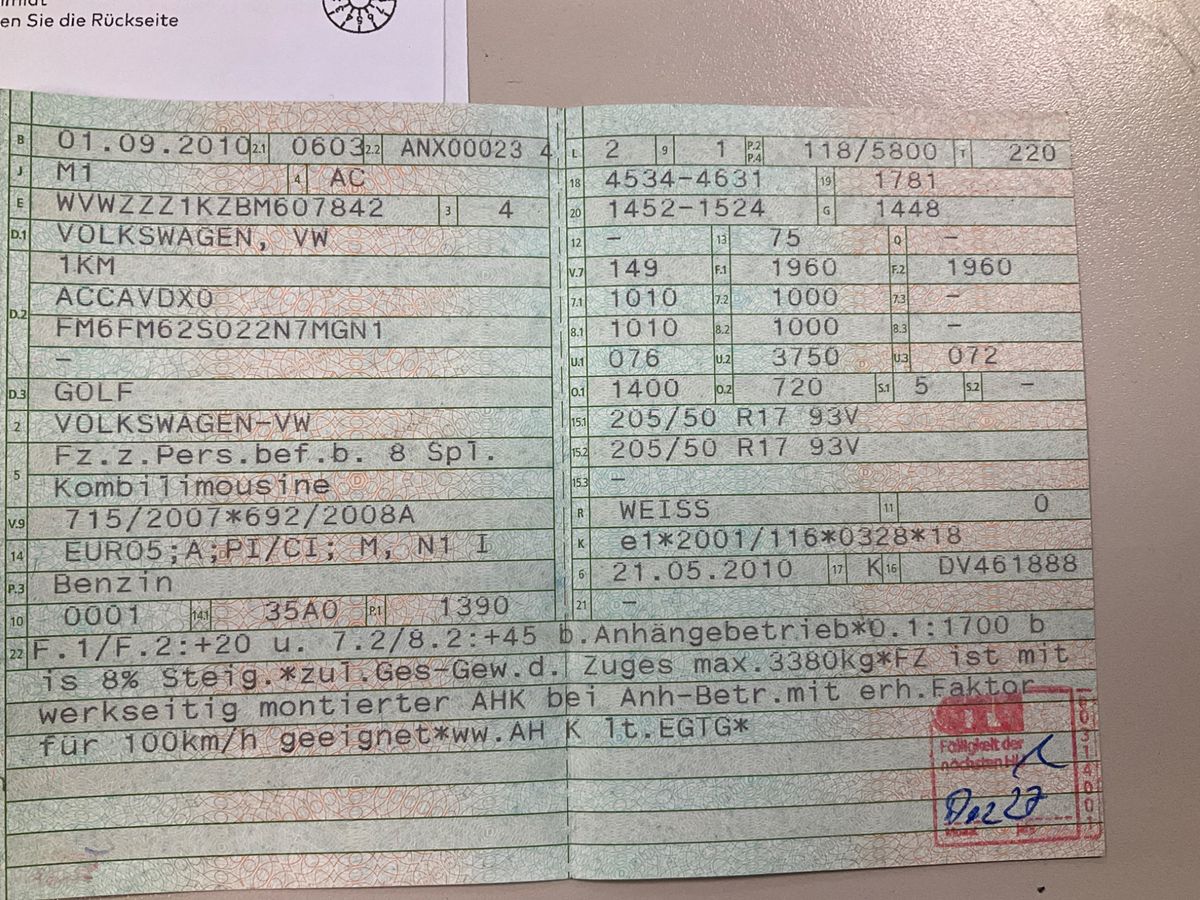 en Sie die Rückseite
B 01.09.2010 2.1 0603 2.2 ANX00023 4
J M1 4 AC
E WVWZZZ1KZBM607842 3 4
D.1 VOLKSWAGEN, VW
1KM
D.2 ACCAVDX0
FM6FM62S022N7MGN1
–
D.3 GOLF
2 VOLKSWAGEN-VW
5 Fz.z.Pers.bef.b. 8 Spl.
Kombilimousine
V.9 715/2007*692/2008A
14 EURO5;A;PI/CI; M, N1 I
P.3 Benzin
10 0001 14.1 35A0 P.1 1390
L 2 9 1 P.2 P.4 118/5800 T 220
18 4534-4631 19 1781
20 1452-1524 G 1448
12 – 13 75 Q –
V.7 149 F.1 1960 F.2 1960
7.1 1010 7.2 1000 7.3 –
8.1 1010 8.2 1000 8.3 –
U.1 076 U.2 3750 U.3 072
O.1 1400 O.2 720 S.1 5 S.2 –
15.1 205/50 R17 93V
15.2 205/50 R17 93V
15.3 –
R WEISS 11 0
K e1*2001/116*0328*18
6 21.05.2010 17 K 16 DV461888
21 –
22 F.1/F.2:+20 u. 7.2/8.2:+45 b.Anhängebetrieb*O.1:1700 b
is 8% Steig.*zul.Ges-Gew.d. Zuges max.3380kg*FZ ist mit
werkseitig montierter AHK bei Anh-Betr.mit erh.Faktor
für 100km/h geeignet*ww.AH K lt.EGTG*
Fälligkeit der
nächsten HU
Dez 27
Monat Jahr